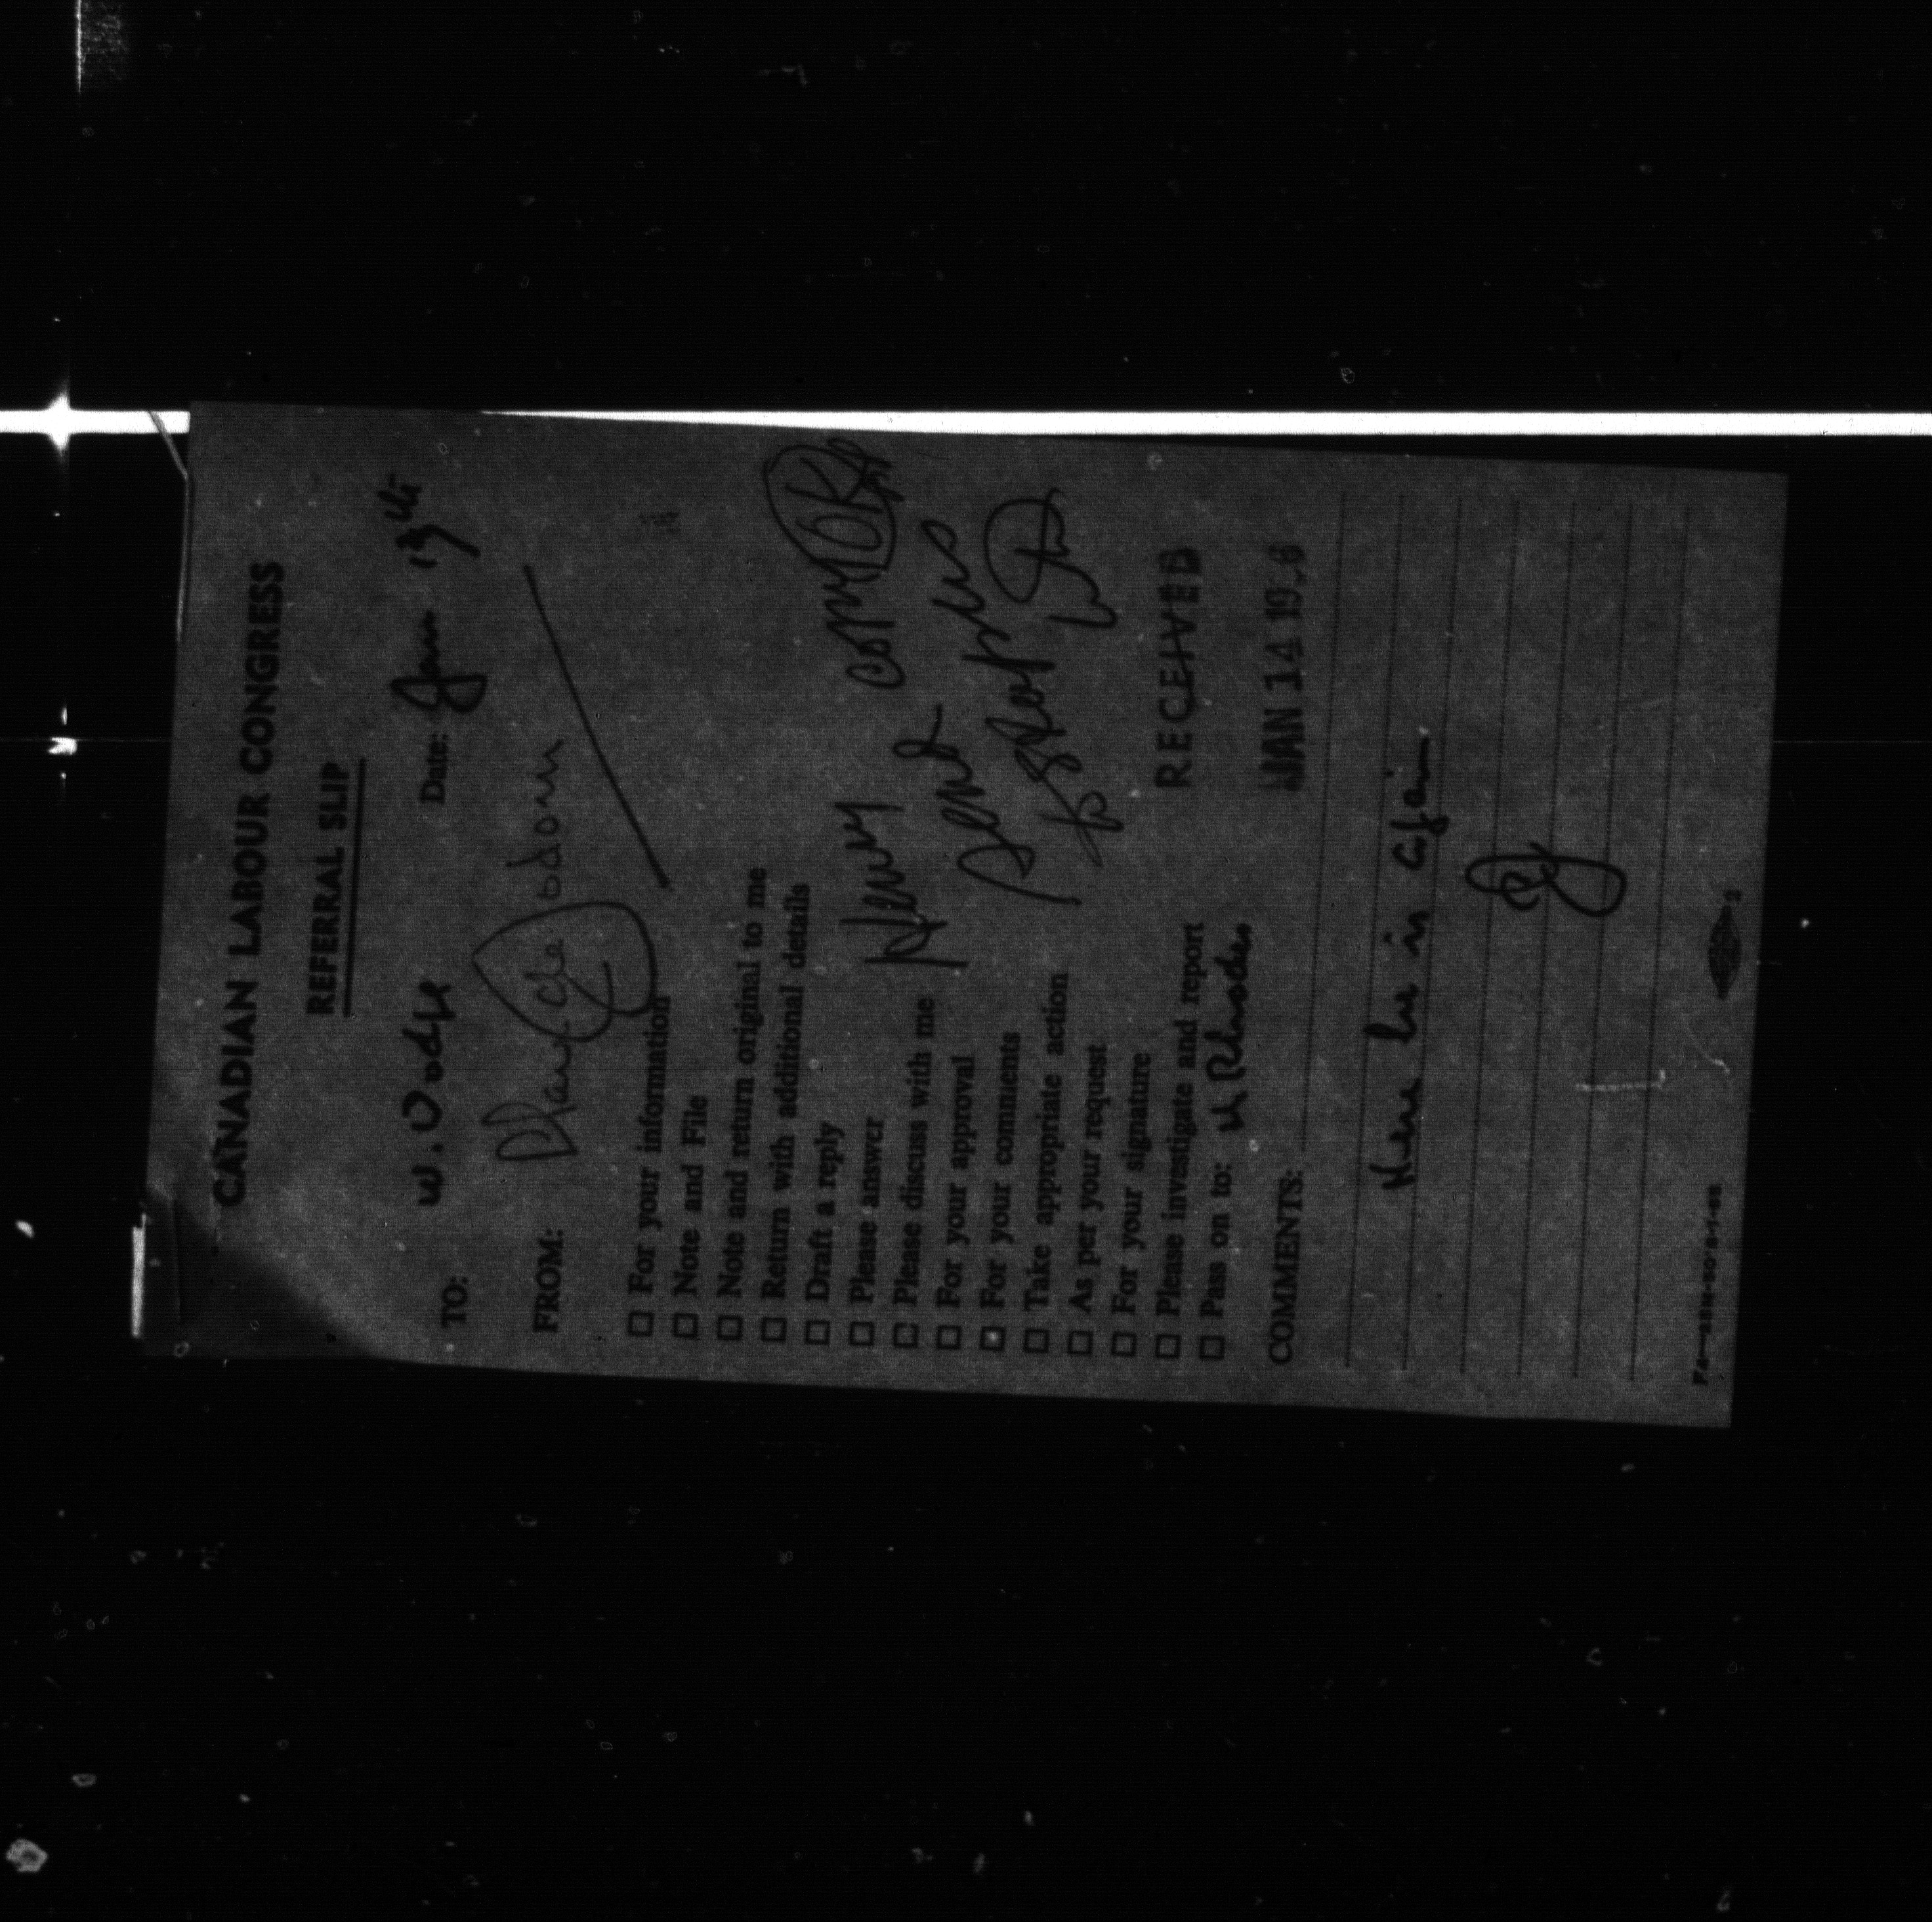 CANADIAN LABOUR CONGRESS
REFERRAL SLIP
TO: W. Dodge Date: Jan 13th
FROM:
☐ For your information
☐ Note and File
☐ Note and return original to me
☐ Return with additional details
☐ Draft a reply
☐ Please answer
☐ Please discuss with me
☐ For your approval
☐ For your comments
☐ Take appropriate action
☐ As per your request
☐ For your signature
☐ Please investigate and report
☐ Pass on to: H Rhodes
Henry
send
RECEIVED
JAN 14 19 6
COMMENTS:
Here he is again